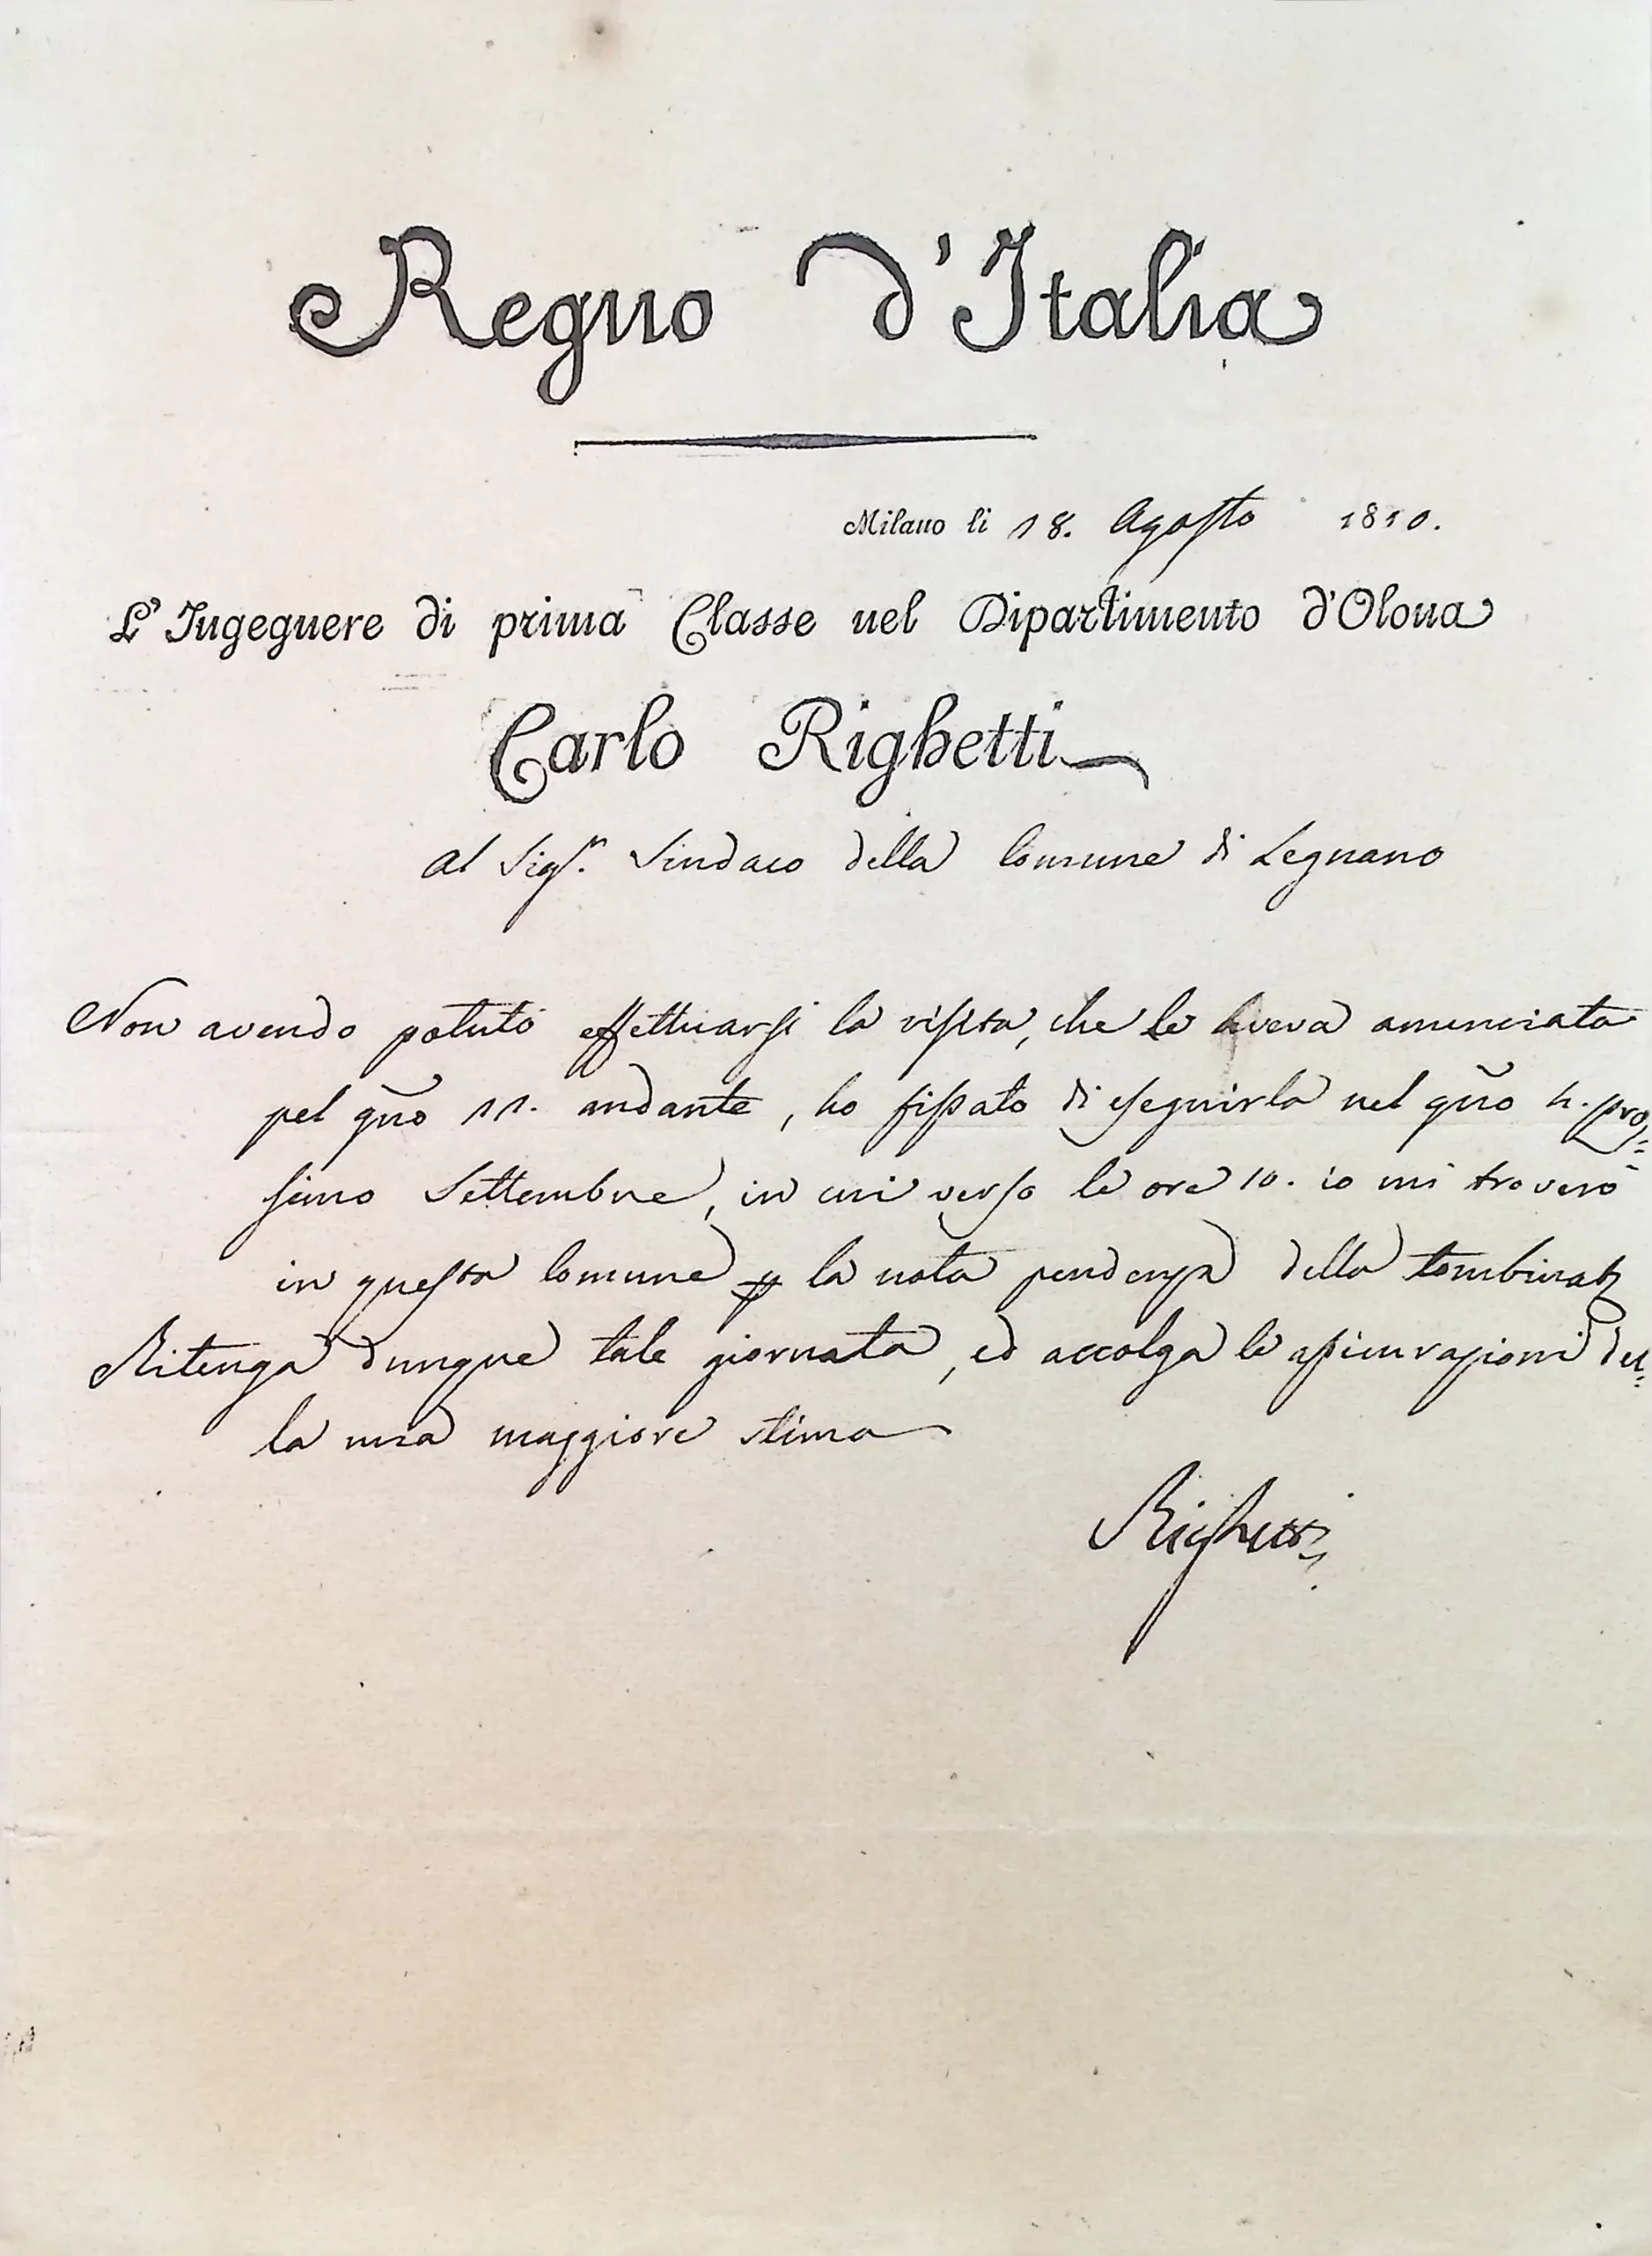 Regno d'Italia
Milano li 18. Agosto 1810.
L'Ingegnere di prima Classe nel Dipartimento d'Olona
Carlo Righetti
Al Sigr. Sindaco della Comune di Legnano
Non avendo potuto effettuarsi la visita, che le aveva annunciata
pel gno 11. andante, ho fissato di eseguirla nel gno 4. pros=
simo Settembre, in cui verso le ore 10. io mi troverò
in questa Comune p la nota pendenza della
Ritenga dunque tale giornata, ed accolga le assicurazioni del=
la mia maggiore stima
Righetti